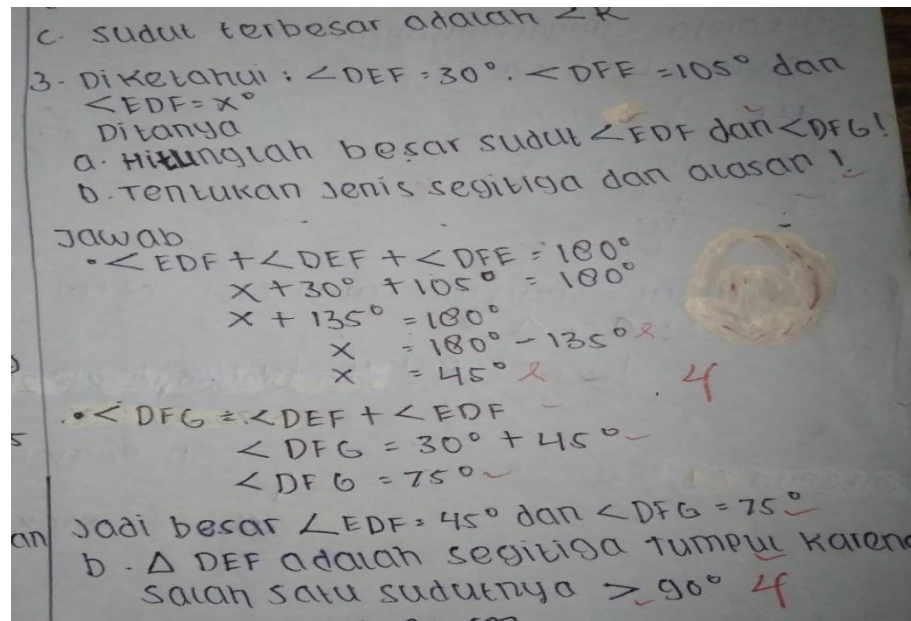 c. sudut terbesar adalah <K
3. Diketahui : <DEF = 30°. <DFE = 105° dan
<EDF = x°
Ditanya
a. Hitunglah besar sudut <EDF dan <DFG!
b. Tentukan Jenis segitiga dan alasan!
Jawab
• < EDF + < DEF + < DFE = 180°
x + 30° + 105° = 180°
x + 135° = 180°
x = 180° - 135°
x = 45°
4
• < DFG = < DEF + < EDF
< DFG = 30° + 45°
< DFG = 75°
an Jadi besar ∠EDF = 45° dan < DFG = 75°
b. Δ DEF adalah segitiga tumpul karena
salah satu sudutnya > 90° 4